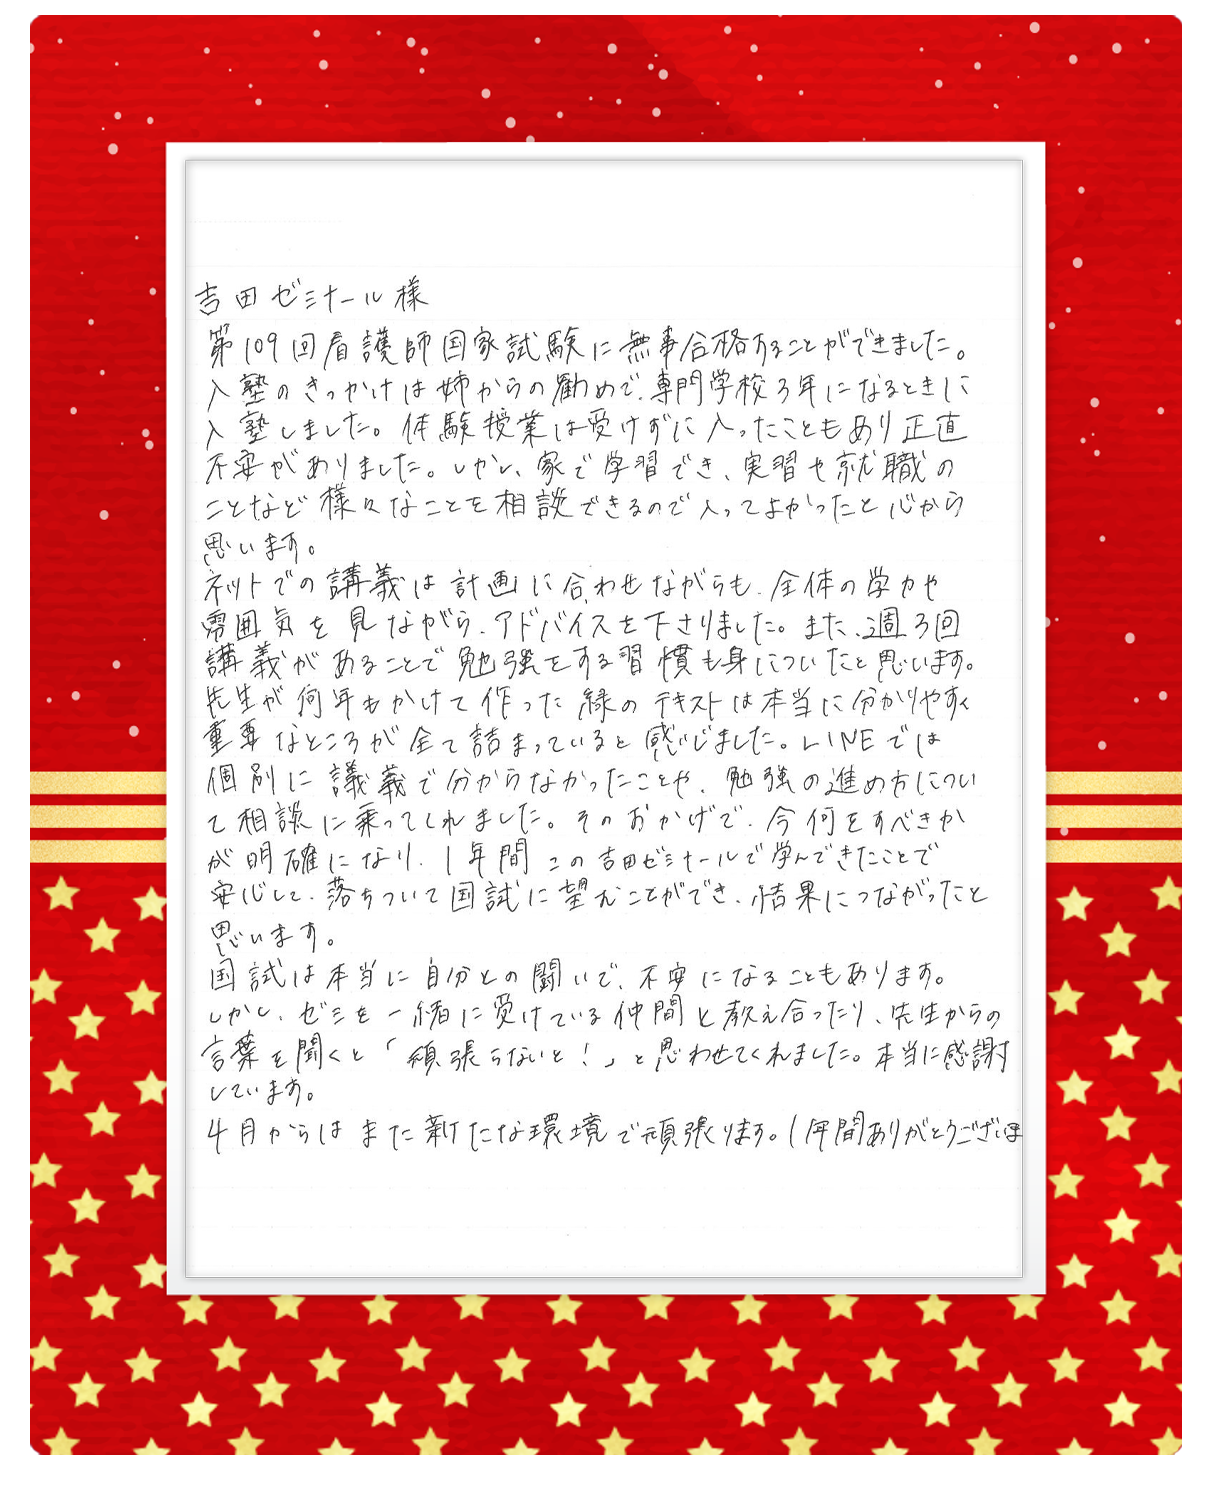 吉田ゼミナール様
第109回看護師国家試験に無事合格することができました。
入塾のきっかけは姉からの勧めで、専門学校3年になるときに
入塾しました。体験授業は受けずに入ったこともあり正直
不安がありました。しかし、家で学習でき、実習や就職の
ことなど様々なことを相談できるので入ってよかったと心から
思います。
ネットでの講義は計画に合わせながらも、全体の学力や
雰囲気を見ながら、アドバイスを下さりました。また、週3回
講義があることで勉強をする習慣も身についたと思います。
先生が何年もかけて作った緑のテキストは本当に分かりやすく
重要なところが全て詰まっていると感じました。LINEでは
個別に講義で分からなかったことや、勉強の進め方につい
て相談に乗ってくれました。そのおかげで、今何をすべきか
が明確になり、1年間この吉田ゼミナールで学んできたことで
安心して、落ちついて国試に望むことができ、結果につながったと
思います。
国試は本当に自分との闘いで、不安になることもあります。
しかし、ゼミを一緒に受けている仲間と教え合ったり、先生からの
言葉を聞くと「頑張らないと!」と思わせてくれました。本当に感謝
しています。
4月からはまた新たな環境で頑張ります。1年間ありがとうございま